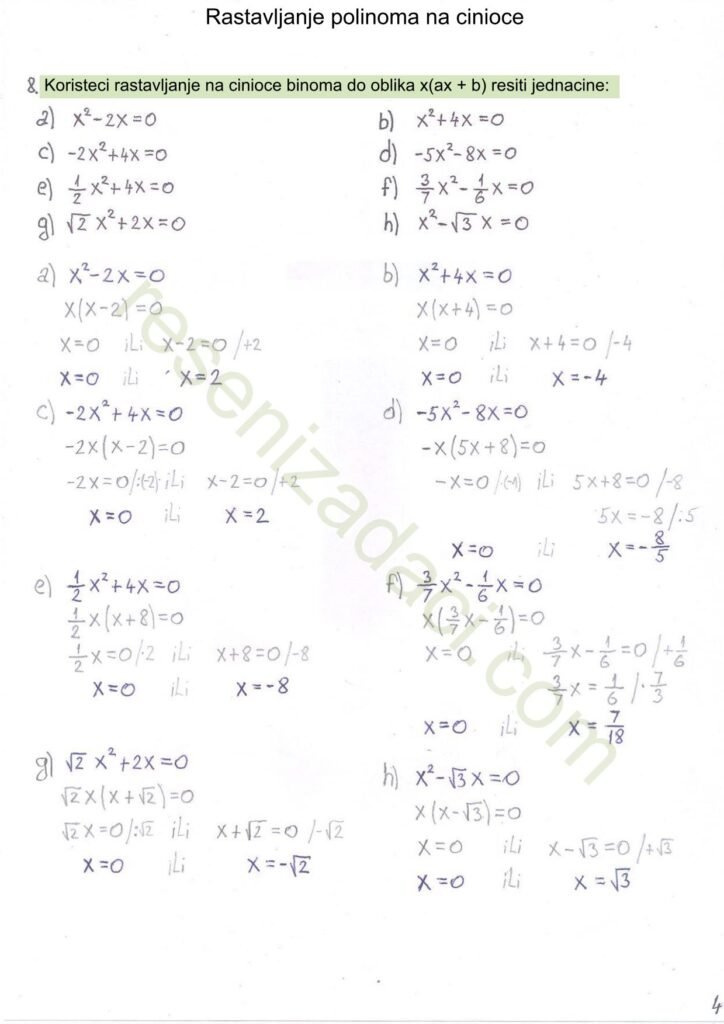 Rastavljanje polinoma na cinioce
8. Koristeci rastavljanje na cinioce binoma do oblika x(ax + b) resiti jednacine:
a) x²-2x=0
b) x²+4x=0
c) -2x²+4x=0
d) -5x²-8x=0
e) 1/2 x²+4x=0
f) 3/7 x²-1/6 x=0
g) √2 x²+2x=0
h) x²-√3 x=0
a) x²-2x=0
x(x-2)=0
x=0 ili x-2=0 /+2
x=0 ili x=2
b) x²+4x=0
x(x+4)=0
x=0 ili x+4=0 /-4
x=0 ili x=-4
c) -2x²+4x=0
-2x(x-2)=0
-2x=0/:(-2) ili x-2=0/+2
x=0 ili x=2
d) -5x²-8x=0
-x(5x+8)=0
-x=0 /·(-1) ili 5x+8=0 /-8
5x=-8/:5
x=0 ili x=-8/5
e) 1/2 x²+4x=0
1/2 x(x+8)=0
1/2 x=0/·2 ili x+8=0/-8
x=0 ili x=-8
f) 3/7 x²-1/6 x=0
x(3/7 x-1/6)=0
x=0 ili 3/7 x-1/6=0 /+1/6
3/7 x=1/6 /·7/3
x=0 ili x=7/18
g) √2 x²+2x=0
√2 x(x+√2)=0
√2 x=0/:√2 ili x+√2=0 /-√2
x=0 ili x=-√2
h) x²-√3 x=0
x(x-√3)=0
x=0 ili x-√3=0 /+√3
x=0 ili x=√3
resenizadaci.com
4